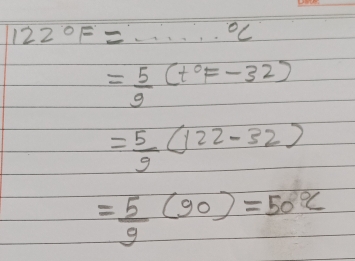 122°F = ........ °C
= 5/9 (t°F - 32)
= 5/9 (122 - 32)
= 5/9 (90) = 50°C